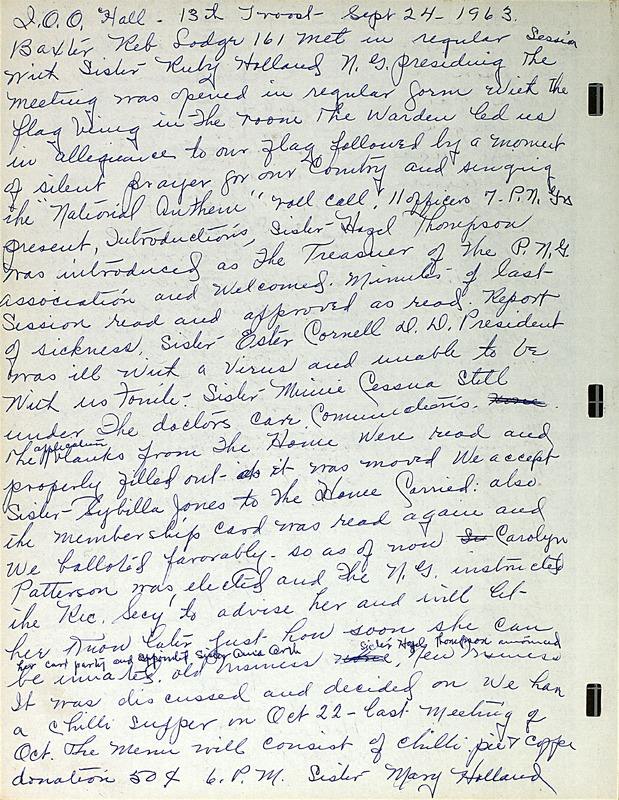 I.O.O. Hall - 13th Troost - Sept 24 - 1963.
Baxter Reb Lodge 161 met in regular Session
with Sister Ruby Holland N.G. presiding The
meeting was opened in regular form with the
flag being in The room The Warden led us
in allegiance to our flag followed by a moment
of silent prayer for our Country and singing
the "National Anthem" roll call, 11 officers 7- P.N. Gs
present, Introductions, Sister Hazel Thompson
was introduced as The Treasurer of The P.N.G
association and Welcomed. Minutes of last
Session read and approved as read. Report
of sickness, Sister Ester Cornell D.D. President
was ill with a Virus and unable to be
with us Tonite. Sister Minie Cessna Still
under The doctors care. Communctions.
The application blanks from The Home were read and
properly filled out - it was moved We accept
Sister Sybilla Jones to The Home Carried. also
the membership card was read again and
We balloted favorably. so as of now Carolyn
Patterson was elected and The N.G. instructed
the Rec. Secy to advise her and will let
her know later just how soon she can
her card party and appointed Sister Sister Hazel Thompson announced
be iniated. old business, New Business
It was discussed and decided on We han
a Chilli Supper on Oct 22 - last Meeting of
Oct. The Menu will consist of chilli pie & coffee
donation 50¢ 6. P.M. Sister Mary Holland